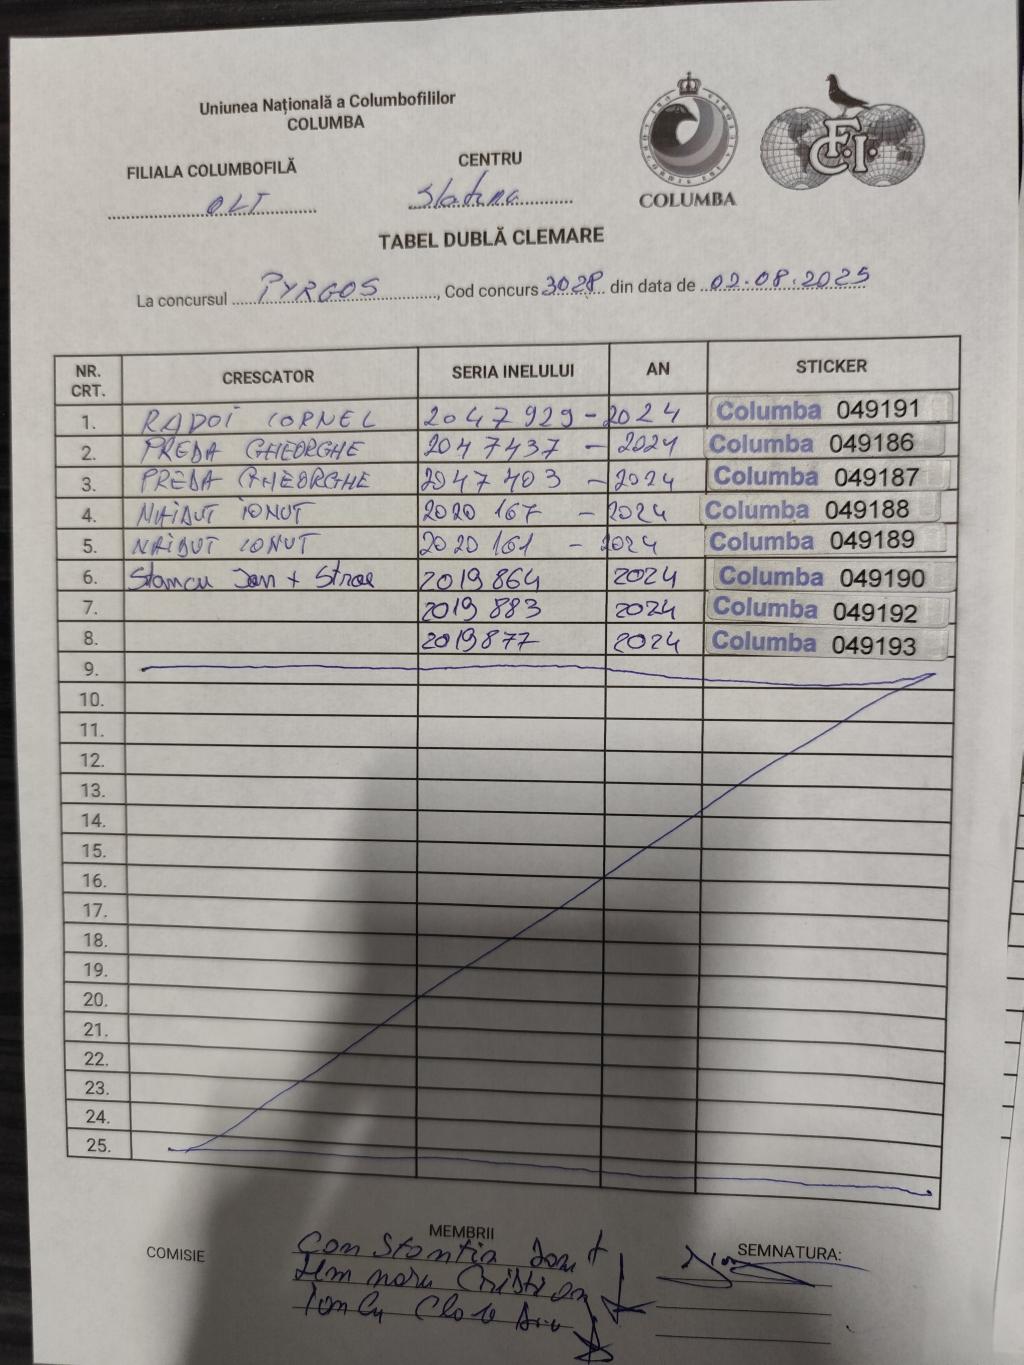 Uniunea Națională a Columbofililor
COLUMBA
FILIALA COLUMBOFILĂ
OLT
CENTRU
Slatina
COLUMBA
F.C.I.
TABEL DUBLĂ CLEMARE
La concursul PYRGOS, Cod concurs 3028 din data de 02.08.2025
NR. CRT. CRESCATOR SERIA INELULUI AN STICKER
1. RADOI CORNEL 2047929 - 2024 Columba 049191
2. PREDA GHEORGHE 2047437 - 2024 Columba 049186
3. PREDA GHEORGHE 2047403 - 2024 Columba 049187
4. NAIDUT IONUT 2020 167 - 2024 Columba 049188
5. NAIDUT IONUT 2020 161 - 2024 Columba 049189
6. Stancu Ion + Stroe 2019864 2024 Columba 049190
7. 2019 883 2024 Columba 049192
8. 2019877 2024 Columba 049193
9.
10.
11.
12.
13.
14.
15.
16.
17.
18.
19.
20.
21.
22.
23.
24.
25.
COMISIE
MEMBRII
SEMNATURA:
Constantin Ionut
Cristian